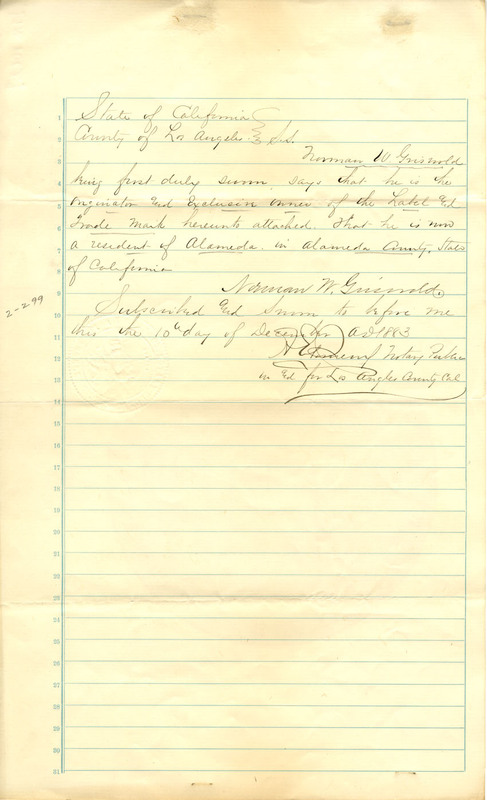 State of California
County of Los Angeles } S.S.
Norman W Griswold
being first duly sworn, says that he is the
originator and Exclusive owner of the Label and
Trade Mark hereunto attached. That he is now
a resident of Alameda. in Alameda County, State
of California
Norman W. Griswold.
Subscribed and Sworn to before me
this the 10th day of December A D 1883
Notary Public
in and for Los Angeles County Cal
2-2-99
1
2
3
4
5
6
7
8
9
10
11
12
13
14